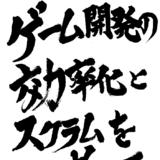 ゲーム開発の
効率化と
スクラムを